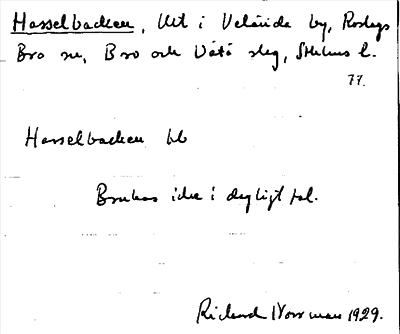 Hasselbacken, Utl i Velünda by, Roslags
Bro sn, Bro och Vätö slg, Sthlms l.
77.
Hasselbacken bb
Brukas icke i dagligt tal.
Rickard Norrman 1929.